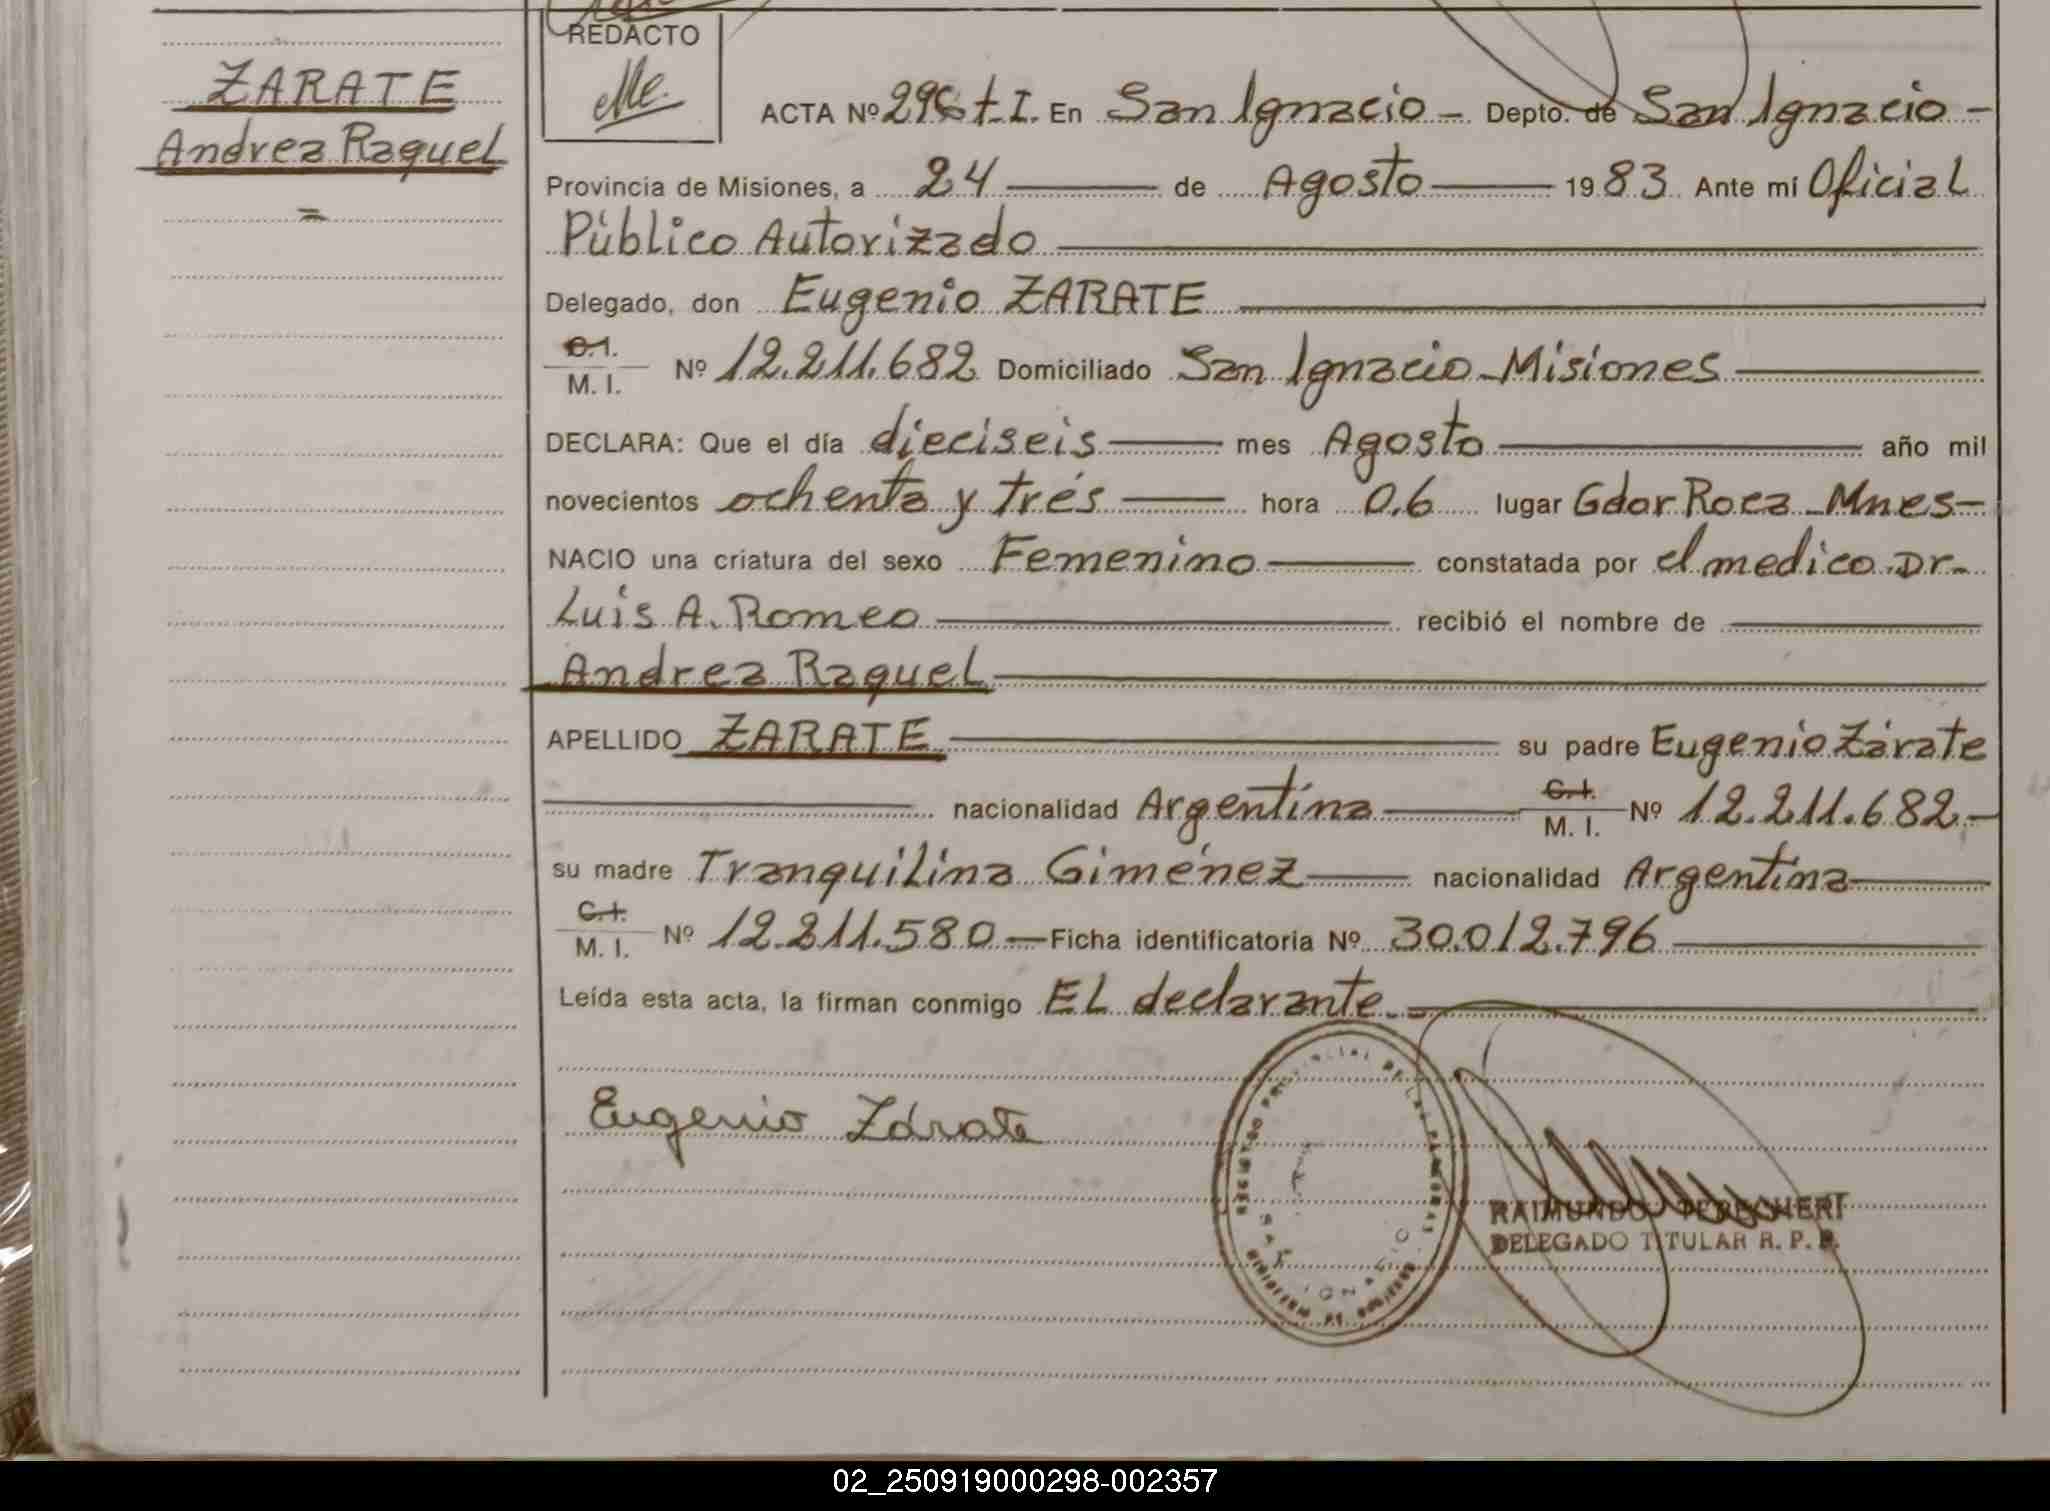 REDACTO
ZARATE
Andrea Raquel
ACTA Nº 296 t. I. En San Ignacio - Depto. de San Ignacio -
Provincia de Misiones, a 24 de Agosto 1983 Ante mí Oficial
Público Autorizado
Delegado, don Eugenio ZARATE
C.I.
M. I. Nº 12.211.682 Domiciliado San Ignacio - Misiones
DECLARA: Que el día dieciseis mes Agosto año mil
novecientos ochenta y trés hora 0.6 lugar Gdor Roca - Mnes -
NACIO una criatura del sexo Femenino constatada por el medico Dr.
Luis A. Romeo recibió el nombre de
Andrea Raquel
APELLIDO ZARATE su padre Eugenio Zárate
nacionalidad Argentina C.I. M. I. Nº 12.211.682 -
su madre Tranquilina Giménez nacionalidad Argentina
C.I.
M. I. Nº 12.211.580 - Ficha identificatoria Nº 30.012.796
Leída esta acta, la firman conmigo EL declarante. -
Eugenio Zárate
REGISTRO PROVINCIAL DE LAS PERSONAS
SAN IGNACIO
RAIMUNDO
DELEGADO TITULAR R. P. P.
02_250919000298-002357